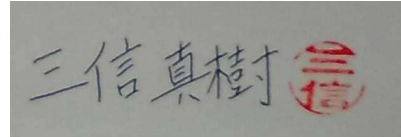 三信真樹 三信